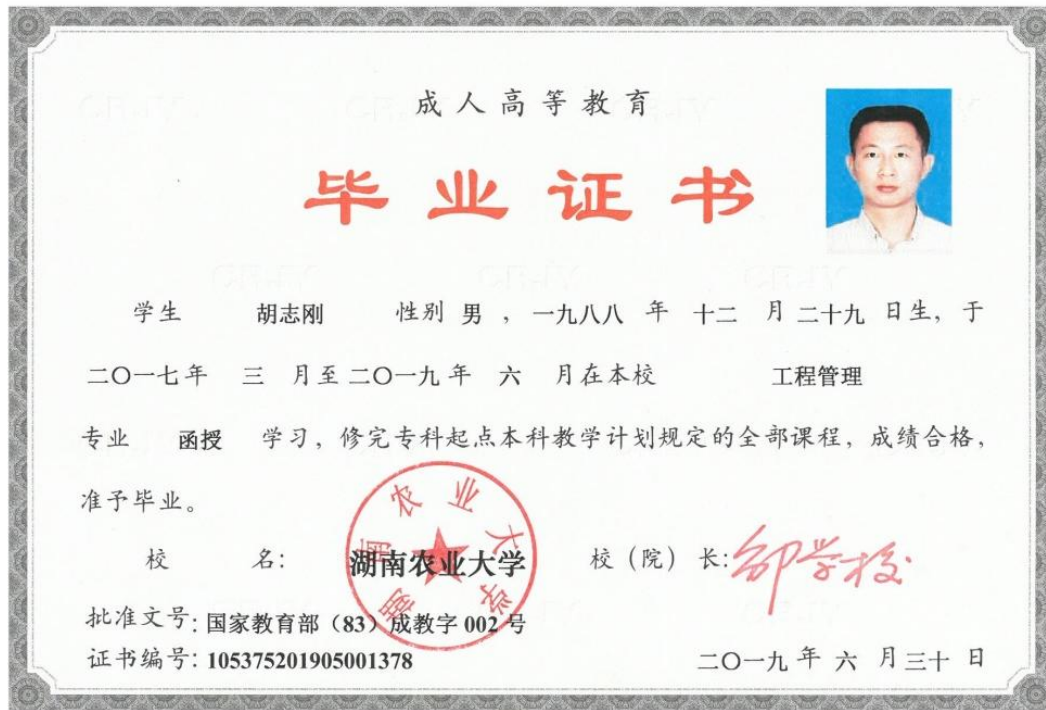 成人高等教育
毕业证书
学生 胡志刚 性别 男 ，一九八八 年 十二 月 二十九 日生，于
二〇一七年 三 月至二〇一九年 六 月在本校 工程管理
专业 函授 学习，修完专科起点本科教学计划规定的全部课程，成绩合格，
准予毕业。
校 名： 湖南农业大学 校（院）长：
湖南农业大学
批准文号：国家教育部（83）成教字 002 号
证书编号：105375201905001378 二〇一九 年 六 月 三十 日